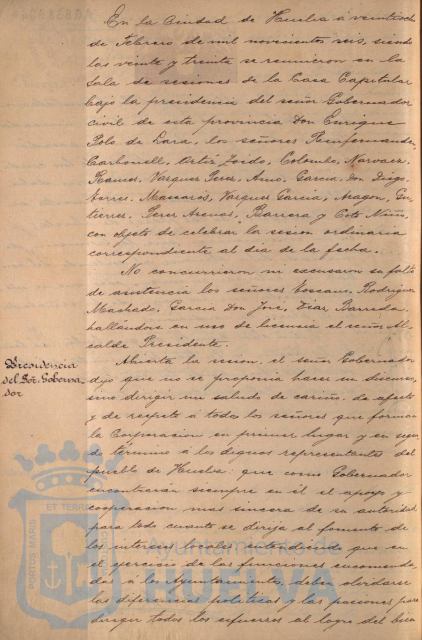 En la Ciudad de Huelva á veintiseis
de Febrero de mil novecientos seis, siendo
las veinte y treinta se reunieron en la
Sala de sesiones de la Casa Capitular
bajo la presidencia del señor Gobernador
civil de esta provincia Don Enrique
Polo de Lara, los señores
Carbonell, Ortiz, Colombo, Narvaez,
Ramos, Vazquez Perez, Garcia Don Diego,
Torres, Vazquez Garcia, Aragon, Gu-
tierrez, Perez Arenas, Barrera y Coto Núñez,
con objeto de celebrar la sesión ordinaria
correspondiente al dia de la fecha.
No concurrieron ni excusaron su falta
de asistencia los señores Toscano, Rodriguez
Machado, Garcia Don José, Diaz, Barreda,
hallándose en uso de licencia el señor Al-
calde Presidente.
Presidencia
del Sor. Goberna-
dor
Abierta la sesion, el señor Gobernador
dijo que no se proponia hacer un discurso,
sino dirigir un saludo de cariño, de afecto
y de respeto á todos los señores que forman
la Corporacion en primer lugar y en segun-
do término á los dignos representantes del
pueblo de Huelva: que como Gobernador
encontrarán siempre en él el apoyo y
cooperacion mas sincera de su autoridad
para todo cuanto se dirija al fomento de
los intereses locales, entendiendo que en
el ejercicio de las funciones encomenda-
das á los Ayuntamientos, deben olvidarse
las diferencias politicas y las pasiones para
dirigir todos los esfuerzos al logro del bien
PORTUS MARIS ET TERRE CUSTODIA
Ayuntamiento de
HUELVA